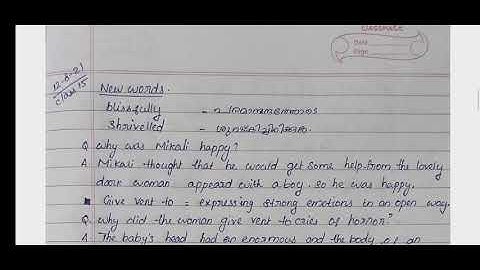 classmate
Date
Page
12-8-21
class 15
New words.
blissfully - പരമാനന്ദത്തോടെ
Shrivelled -
Q why was Mikali happy?
A Mikali thought that he would get some help from the lovely
dark woman appeard with a boy. so he was happy.
■ Give vent to = expressing strong emotions in an open way.
Q why did the woman give vent to cries of horror?
A The baby's head had an enormous and the body of an